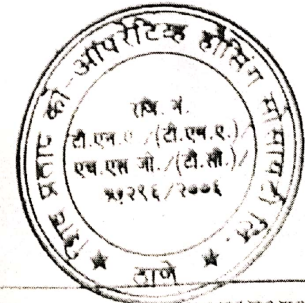 शिव प्रताप को-ऑपरेटिव्ह हौसिंग सोसायटी लि.
रजि. नं.
टी.एन.ए /(टी.एन.ए.)/
एच.एस जी./(टी.सी.)/
१२९६/२००६
ठाणे